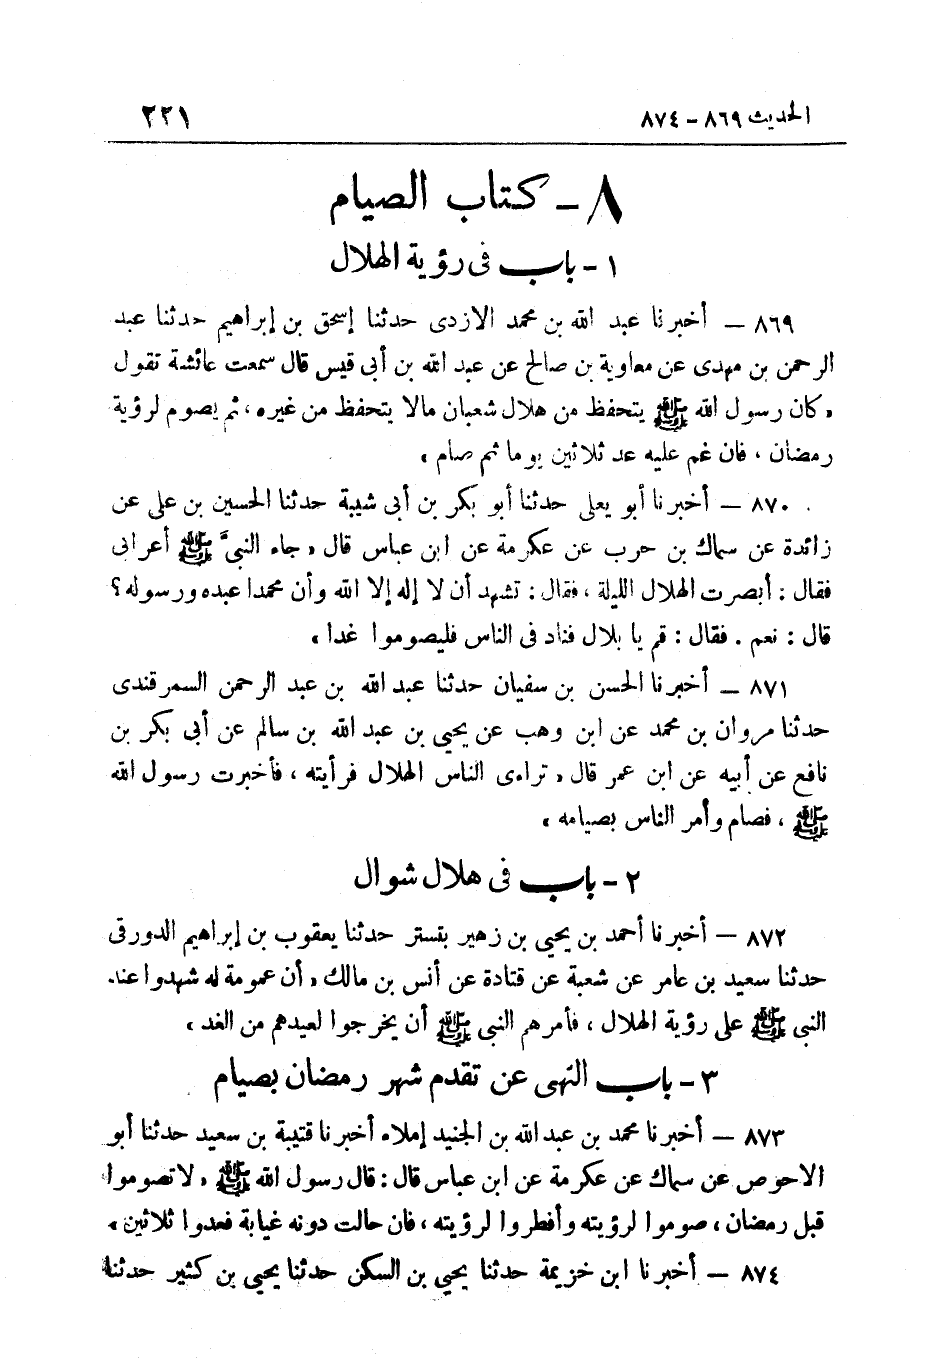 الحديث ٨٦٩ – ٨٧٤ ٢٢١
٨ – كتاب الصيام
١ – باب فى رؤية الهلال
٨٦٩ – أخبرنا عبد الله بن محمد الازدى حدثنا إسحق بن إبراهيم حدثنا عبد
الرحمن بن مهدى عن معاوية بن صالح عن عبد الله بن أبى قيس قال سمعت عائشة تقول
« كان رسول الله ﷺ يتحفظ من هلال شعبان مالا يتحفظ من غيره ، ثم يصوم لرؤية
رمضان ، فان غم عليه عد ثلاثين يوما ثم صام »
٨٧٠ – أخبرنا أبو يعلى حدثنا أبو بكر بن أبى شيبة حدثنا الحسين بن على عن
زائدة عن سماك بن حرب عن عكرمة عن ابن عباس قال « جاء النبىَّ ﷺ أعرابى
فقال : أبصرت الهلال الليلة ، فقال : تشهد أن لا إله إلا الله وأن محمدا عبده ورسوله ؟
قال : نعم . فقال : قم يا بلال فناد فى الناس فليصوموا غدا »
٨٧١ – أخبرنا الحسن بن سفيان حدثنا عبد الله بن عبد الرحمن السمرقندى
حدثنا مروان بن محمد عن ابن وهب عن يحيى بن عبد الله بن سالم عن أبى بكر بن
نافع عن أبيه عن ابن عمر قال « تراءى الناس الهلال فرأيته ، فأخبرت رسول الله
ﷺ ، فصام وأمر الناس بصيامه »
٢ – باب فى هلال شوال
٨٧٢ – أخبرنا أحمد بن يحيى بن زهير بتستر حدثنا يعقوب بن إبراهيم الدورقى
حدثنا سعيد بن عامر عن شعبة عن قتادة عن أنس بن مالك « أن عمومة له شهدوا عند
النبى ﷺ على رؤية الهلال ، فأمرهم النبى ﷺ أن يخرجوا لعيدهم من الغد »
٣ – باب النهى عن تقدم شهر رمضان بصيام
٨٧٣ – أخبرنا محمد بن عبد الله بن الجنيد إملاء أخبرنا قتيبة بن سعيد حدثنا أبو
الاحوص عن سماك عن عكرمة عن ابن عباس قال : قال رسول الله ﷺ « لا تصوموا
قبل رمضان ، صوموا لرؤيته وأفطروا لرؤيته ، فان حالت دونه غيابة فعدوا ثلاثين »
٨٧٤ – أخبرنا ابن خزيمة حدثنا يحيى بن السكن حدثنا يحيى بن كثير حدثنا